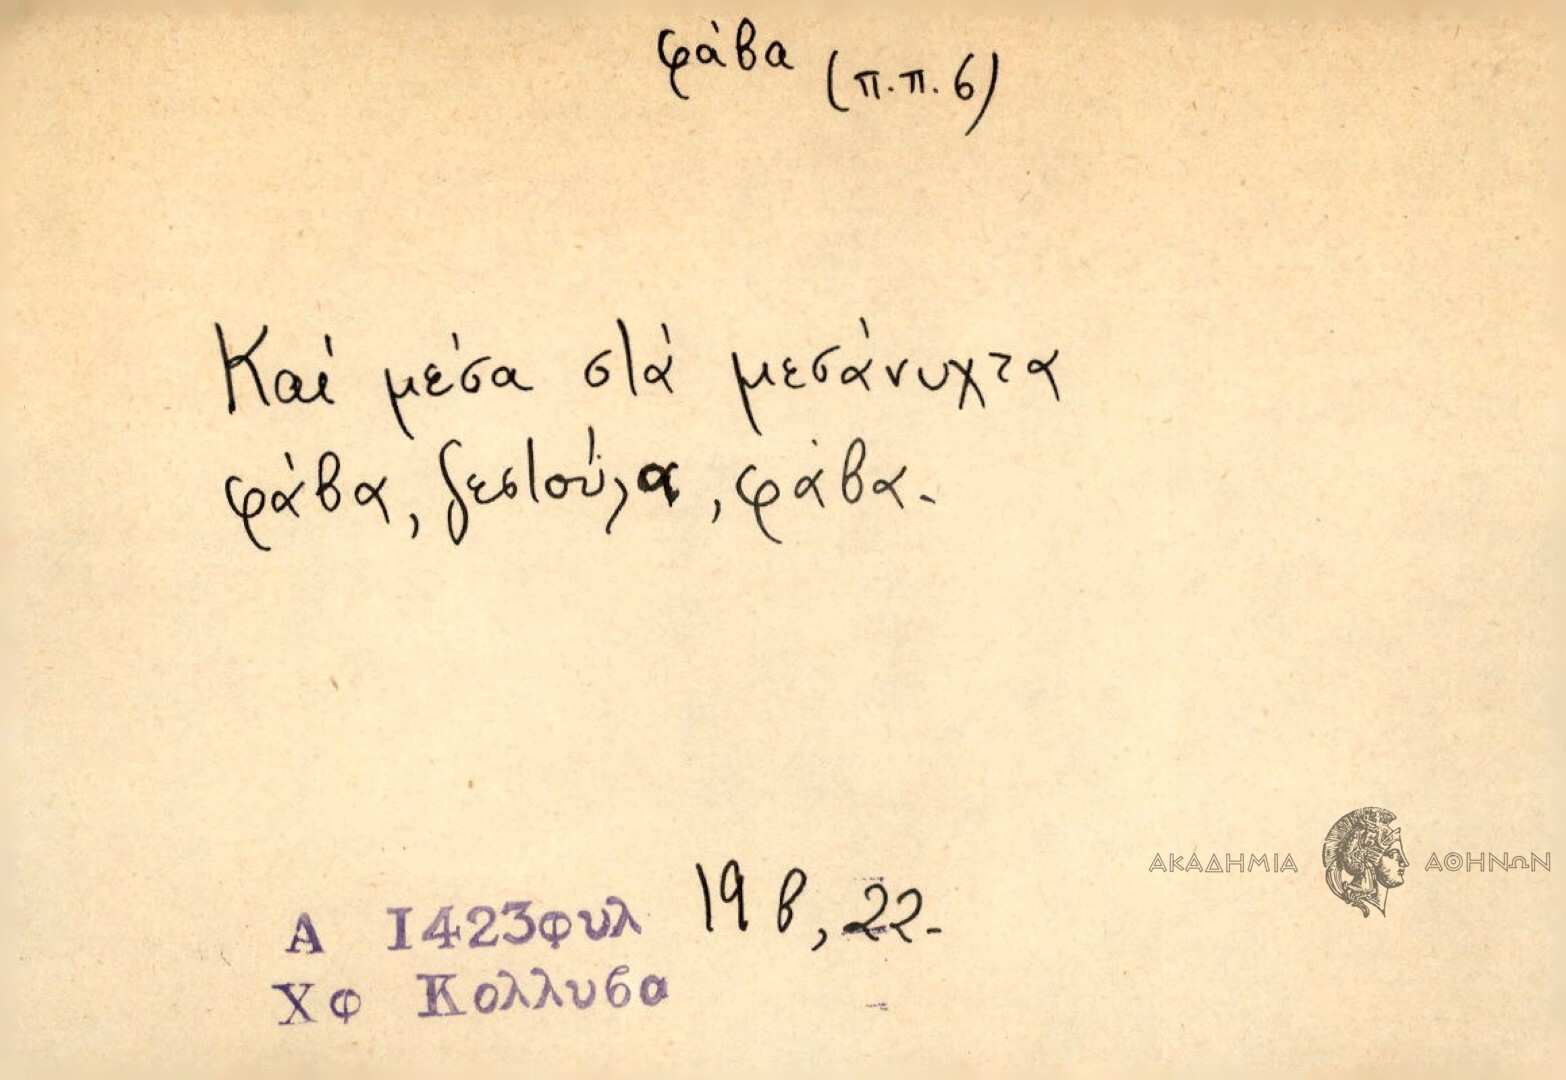 φάβα (π.π. 6)
Καί μέσα στά μεσάνυχτα
φάβα, ζεστούλα, φάβα.
ΑΚΑΔΗΜΙΑ ΑΘΗΝΩΝ
Α 1423φυλ 19β, 22.
Χφ Κολλυβα